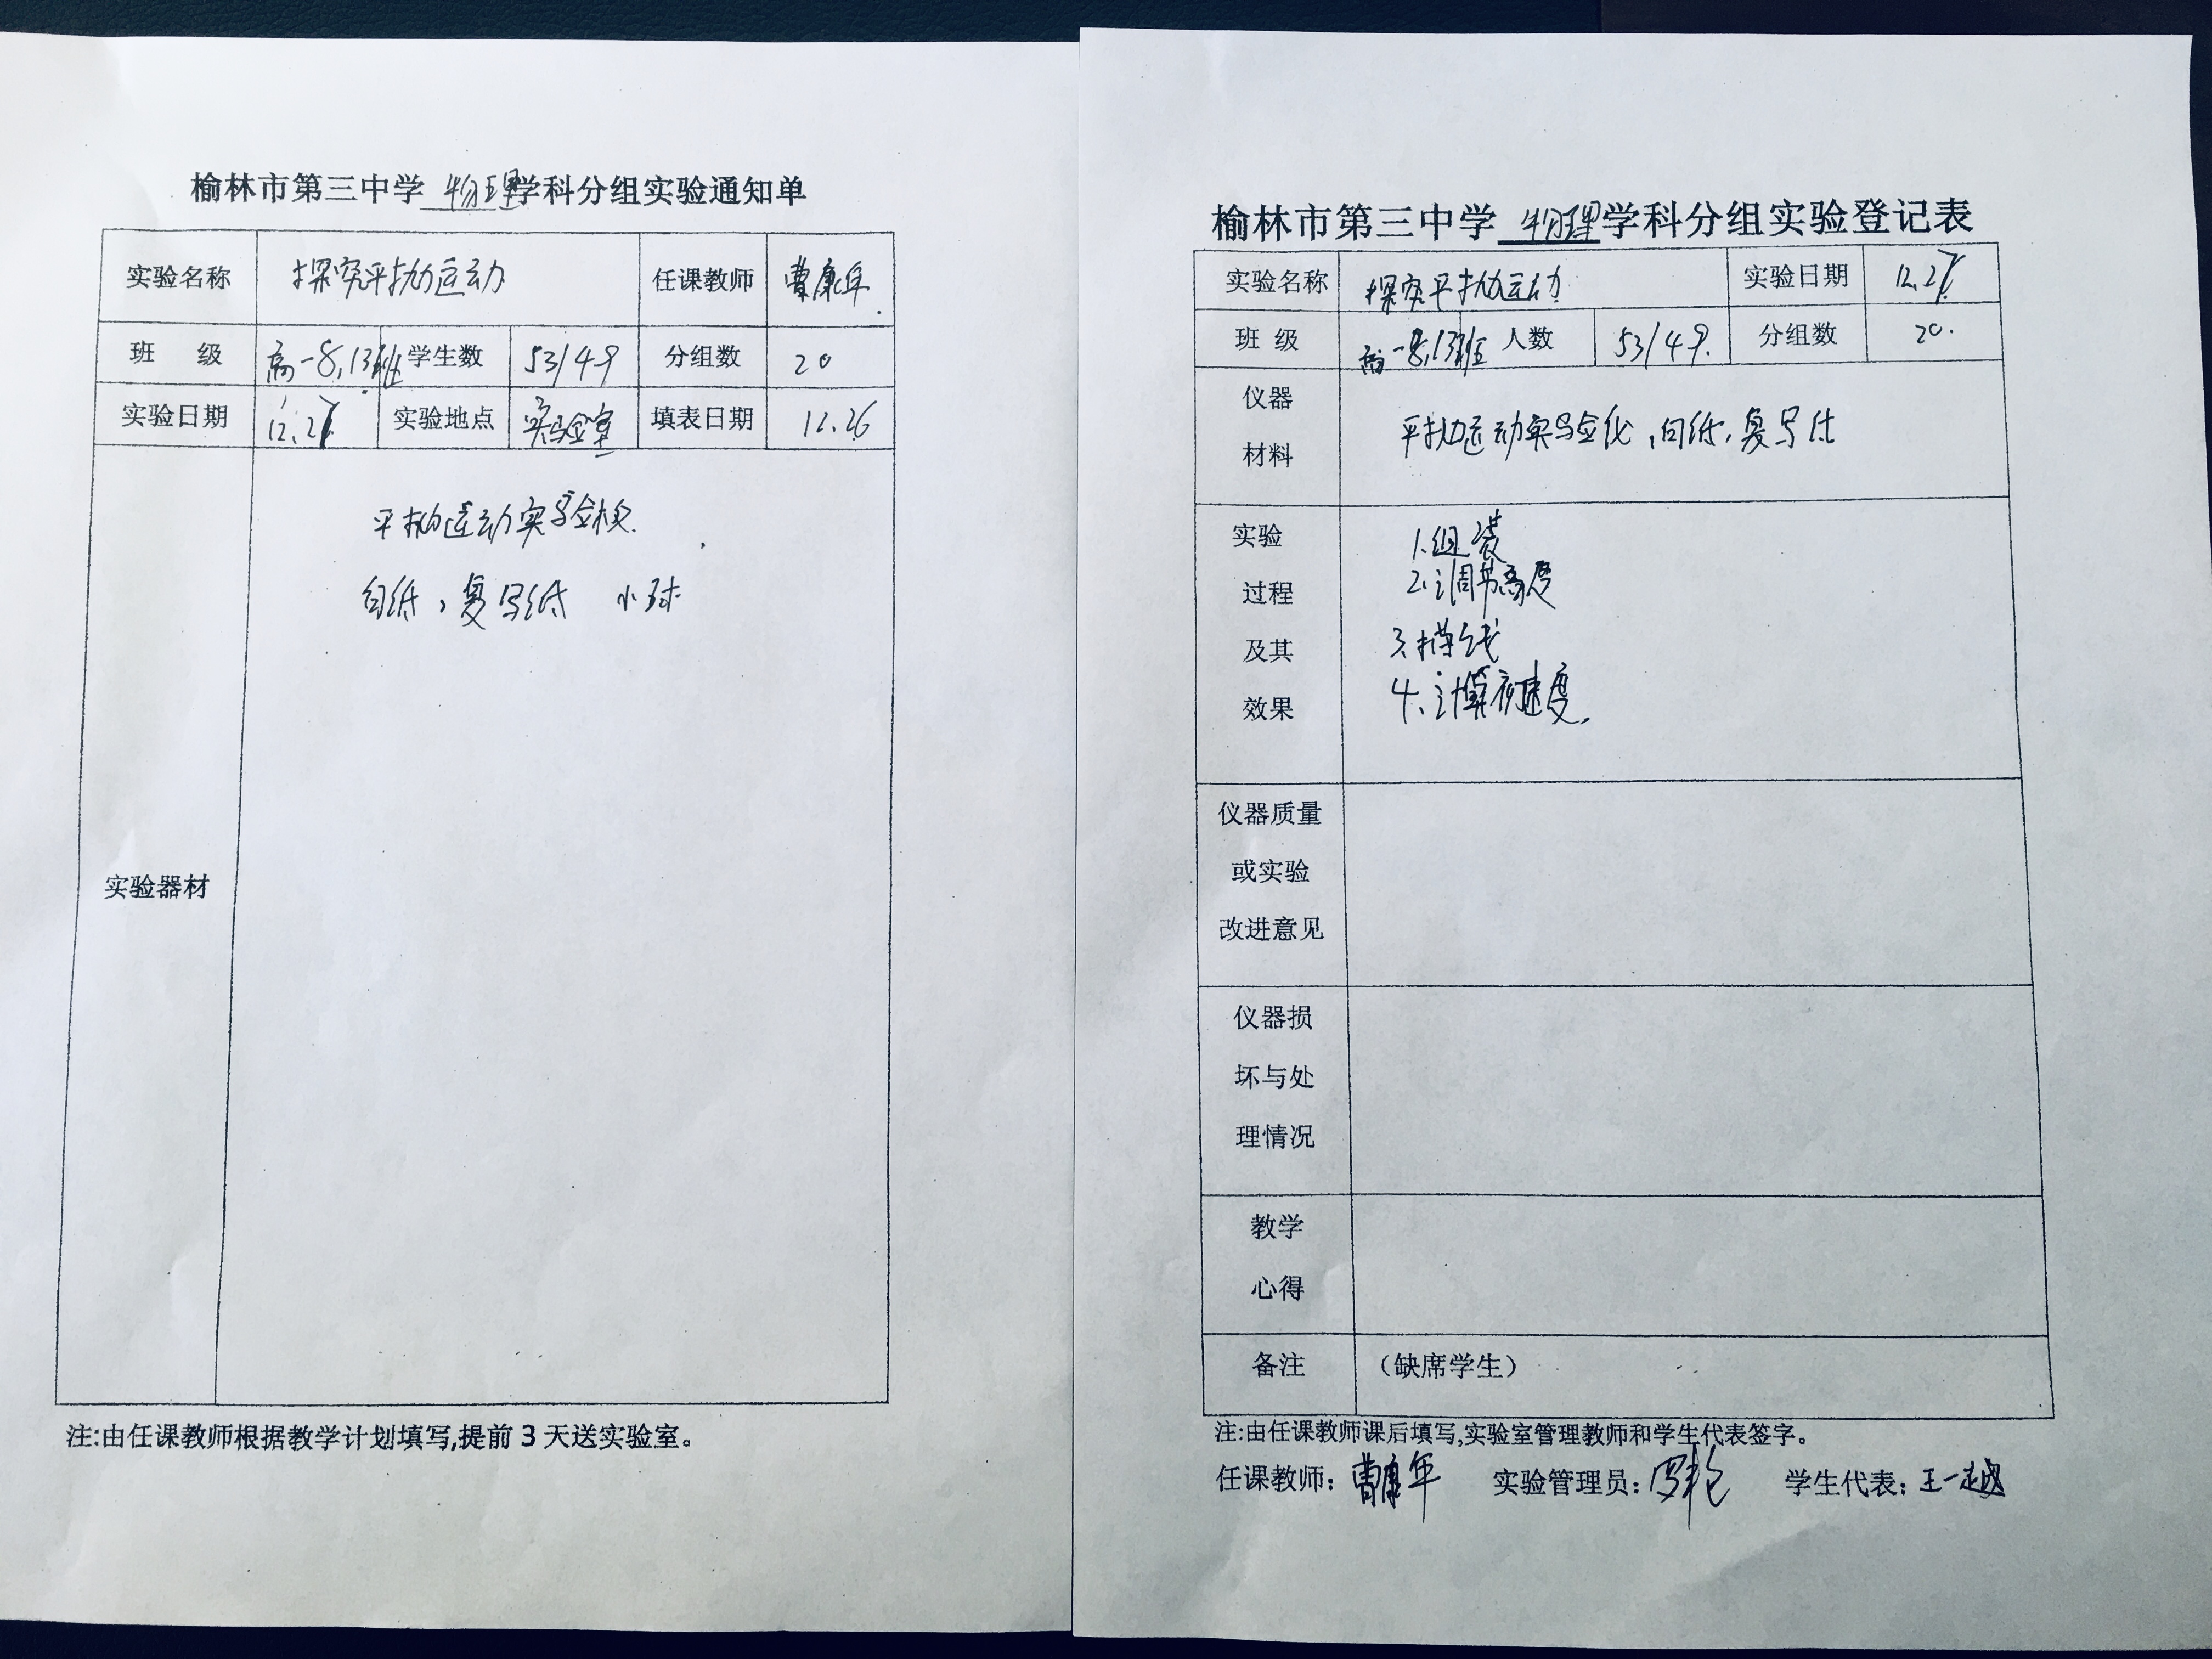 榆林市第三中学 物理学科分组实验通知单
实验名称 探究平抛运动 任课教师 曹康年
班 级 高一8,13班 学生数 53/49 分组数 20
实验日期 实验地点 实验室 填表日期 12.26
实验器材
平抛运动实验
白纸,复写纸 小球
注:由任课教师根据教学计划填写,提前3天送实验室。
榆林市第三中学 物理学科分组实验登记表
实验名称 探究平抛运动 实验日期
班 级 高一8,13班 人数 53/49. 分组数 20.
仪器
材料
平抛运动实验仪,白纸,复写纸
实验
过程
及其
效果
1.组装
2.调节高度
3.描线
4.计算初速度.
仪器质量
或实验
改进意见
仪器损
坏与处
理情况
教学
心得
备注 (缺席学生)
注:由任课教师课后填写,实验室管理教师和学生代表签字。
任课教师:曹康年 实验管理员: 学生代表:王一越